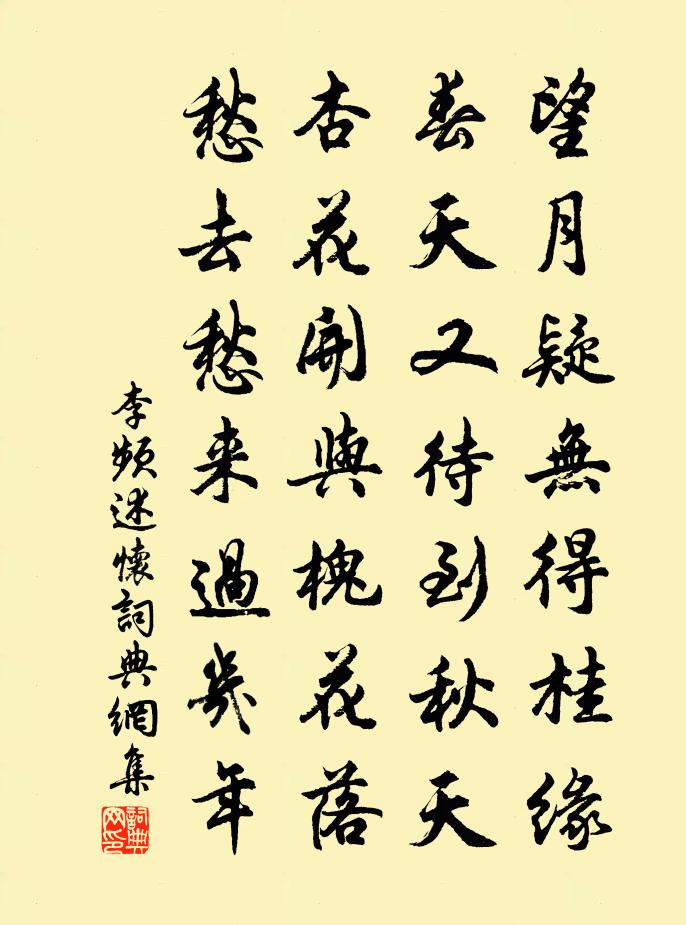 望月疑無得桂緣
春天又待到秋天
杏花開與槐花落
愁去愁來過幾年
李頻述懷詞典網集
詞典网印